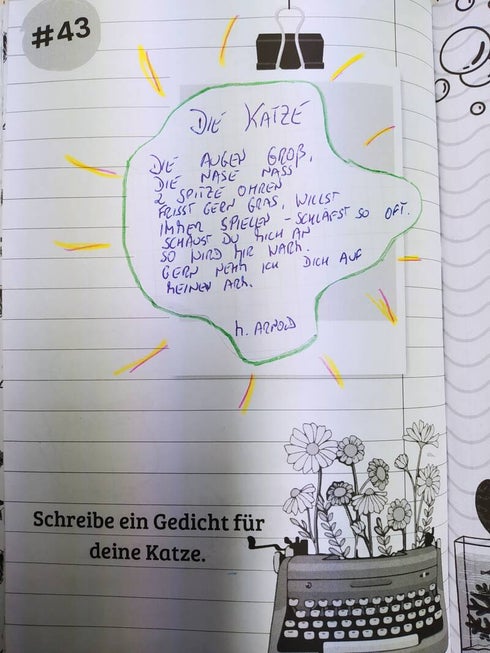 #43
DIE KATZE
DIE AUGEN GROß,
DIE NASE NASS
2 SPITZE OHREN
FRISST GERN GRAS, WILLST
IMMER SPIELEN - SCHLÄFST SO OFT.
SCHAUST DU MICH AN
SO WIRD MIR WARM.
GERN NEHM ICH DICH AUF
MEINEN ARM.
M. ARNOLD
Schreibe ein Gedicht für
deine Katze.